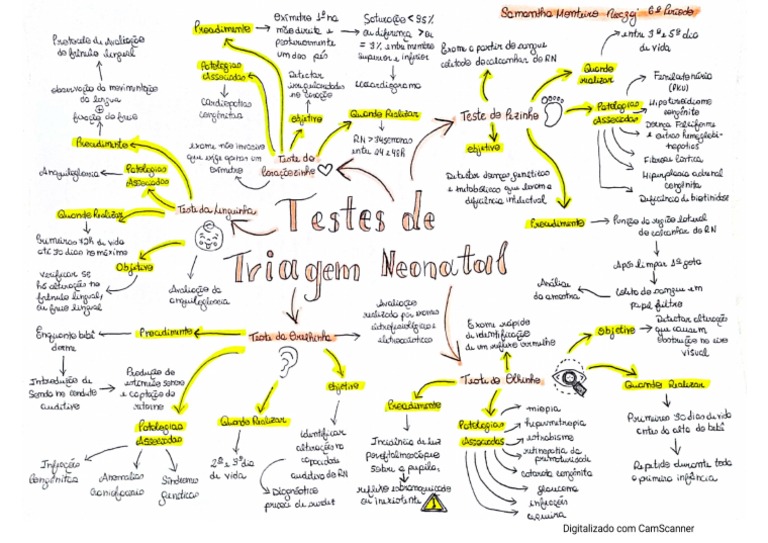 Samantha Monteiro 6º Período
Testes de
Triagem Neonatal
Teste do
Coraçãozinho
Procedimento
oxímetro 1º na
mão direita e
posteriormente
um dos pés
Saturação < 95%
ou diferença > ou
= 3% entre membro
superior e inferior
ecocardiograma
Patologias
Associadas
Cardiopatias
congênitas
Detectar
irregularidades
no coração
Objetivo
Quando Realizar
RN > 34 semanas
entre 24 e 48h
exame não invasivo
que exige apenas um
oxímetro
Teste do Pezinho
Exame a partir do sangue
coletado do calcanhar do RN
Quando
realizar
entre 3º e 5º dia
de vida
Patologias
Associadas
Fenilcetonúria
(PKU)
Hipotireoidismo
congênito
Doença Falciforme
e outras hemoglobi-
nopatias
Fibrose Cística
Hiperplasia adrenal
congênita
Deficiência de biotinidase
objetivo
Detectar doenças genéticas
e metabólicas que levam a
deficiência intelectual
Procedimento
Punção da região lateral
do calcanhar do RN
Após limpar 1ª gota
coleta do sangue em
papel filtro
Análise
da amostra
Teste da Linguinha
Procedimento
observação da movimentação
da língua
+
fixação do freio
Protocolo de avaliação
do frênulo lingual
Patologias
Associadas
Anquiloglossia
Quando Realizar
Primeiras 48h de vida
até 30 dias no máximo
Objetivo
verificar se
há alteração no
frênulo lingual,
ou freio lingual
Avaliação da
anquiloglossia
Teste da Orelhinha
Avaliação
realizada por exames
eletrofisiológicos e
eletroacústicos
Procedimento
Enquanto bebê
dorme
Introdução de
Sonda no conduto
auditivo
Produção de
estímulo sonoro
e captação do
retorno
Patologias
Associadas
Infecção
Congênita
Anomalias
craniofaciais
Síndromes
Genéticas
Quando Realizar
2º e 3º dia
de vida
objetivo
identificar
alteração na
capacidade
auditiva do RN
Diagnóstico
precoce de surdez
Teste do Olhinho
Exame rápido
de identificação
de um reflexo vermelho
Objetivo
Detectar alteração
que causem
obstrução no eixo
visual
Quando Realizar
Primeiros 30 dias de vida
antes da alta do bebê
Repetido durante toda
a primeira infância
Procedimento
Incidência de luz
por oftalmoscópio
sobre a pupila.
reflexo esbranquiçado
ou inexistente
Patologias
Associadas
miopia
hipermetropia
estrabismo
retinopatia da
prematuridade
catarata congênita
glaucoma
infecções
cegueira
Digitalizado com CamScanner